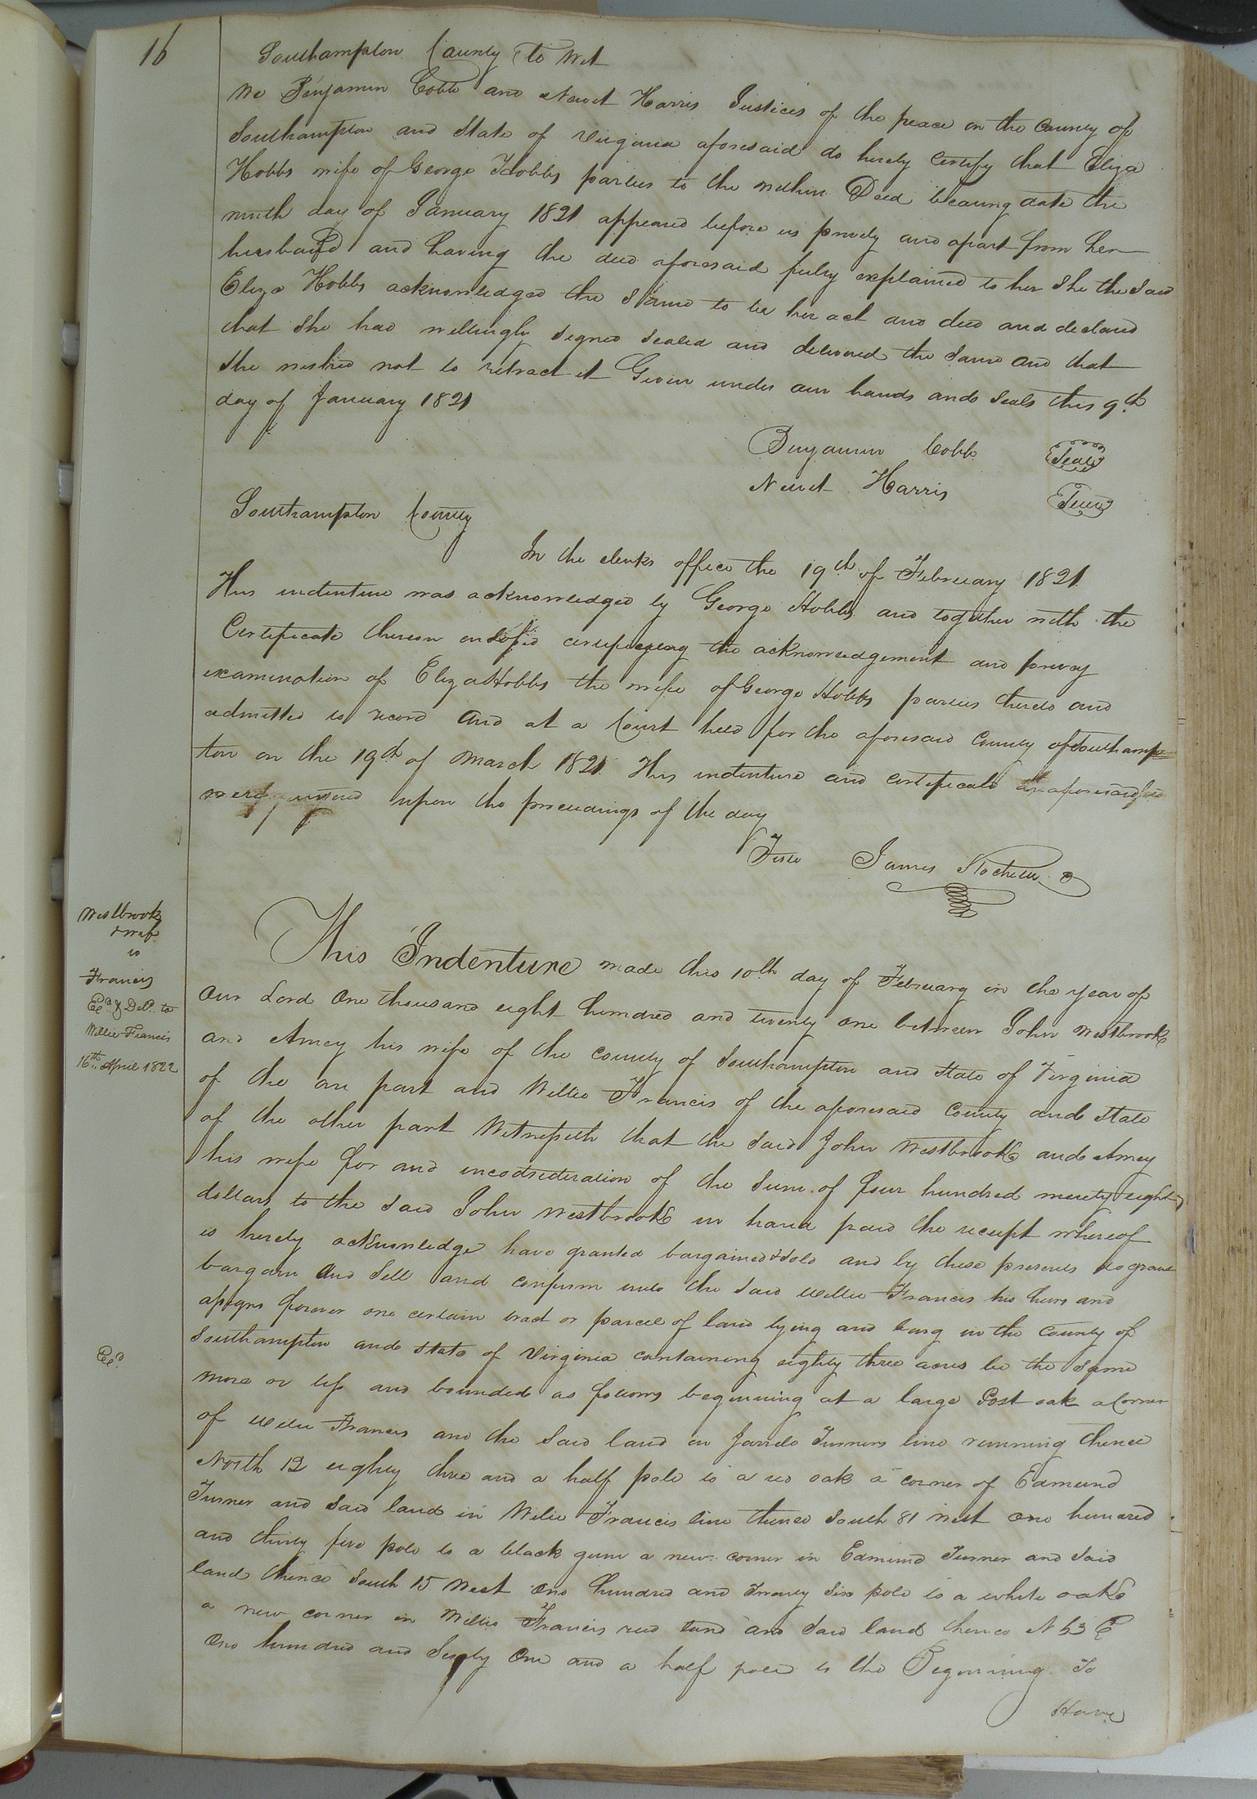 16
Southampton County To Wit
We Benjamin Cobb and Newit Harris Justices of the peace in the County of
Southampton and State of Virginia aforesaid do hereby Certify that Eliza
Hobbs wife of George Hobbs parties to the within Deed bearing date the
ninth day of January 1821 appeared before us privily and apart from her
husband and having the deed aforesaid fully explained to her She the Said
Eliza Hobbs acknowledged the Same to be her act and deed and declared
that She had willingly Signed Sealed and delivered the Same and that
She wished not to retract it Given under our hands and Seals this 9th
day of January 1821
Benjamin Cobb Seal
Newit Harris Seal
Southampton County
In the clerks office the 19th of February 1821
This indenture was acknowledged by George Hobbs and together with the
Certificate thereon certifying the acknowledgement and privy
examination of Eliza Hobbs the wife of George Hobbs parties thereto and
admitted to record and at a Court held for the aforesaid County of Southamp
ton on the 19th of March 1821 This indenture and certificate aforesaid
were entered upon the proceedings of the day
Teste James Rochelle
Westbrook
& wife
to
Francis
Exd & Deld to
Willie Francis
16th April 1822
This Indenture made this 10th day of February in the year of
Our Lord One thousand eight hundred and twenty one between John Westbrook
and Amey his wife of the county of Southampton and State of Virginia
of the one part and Willie Francis of the aforesaid County and State
of the other part Witnesseth that the Said John Westbrook and Amey
his wife for and inconsideration of the Sum of four hundred ninety eight
dollars to the Said John Westbrook in hand paid the receipt whereof
is hereby acknowledge have granted bargained & Sold and by these presents do grant
bargain and Sell and confirm unto the Said Willie Francis his heirs and
assigns forever one certain tract or parcel of land lying and being in the County of
Southampton and State of Virginia containing eighty three acres be the Same
more or less and bounded as follows beginning at a large Post oak a Corner
Exd
of Willie Francis and the Said land in Jarrels Turners line running thence
North 12 eighty three and a half pole to a red oak a corner of Edmund
Turner and Said land in Willie Francis line thence South 81 West one hundred
and thirty five pole to a black gum a new corner in Edmund Turner and Said
land thence South 15 West one hundred and Twenty Six pole to a white oak
a new corner in Willis Francis land and Said land thence N 53 E
one hundred and Sixty One and a half poles to the Beginning To
Have